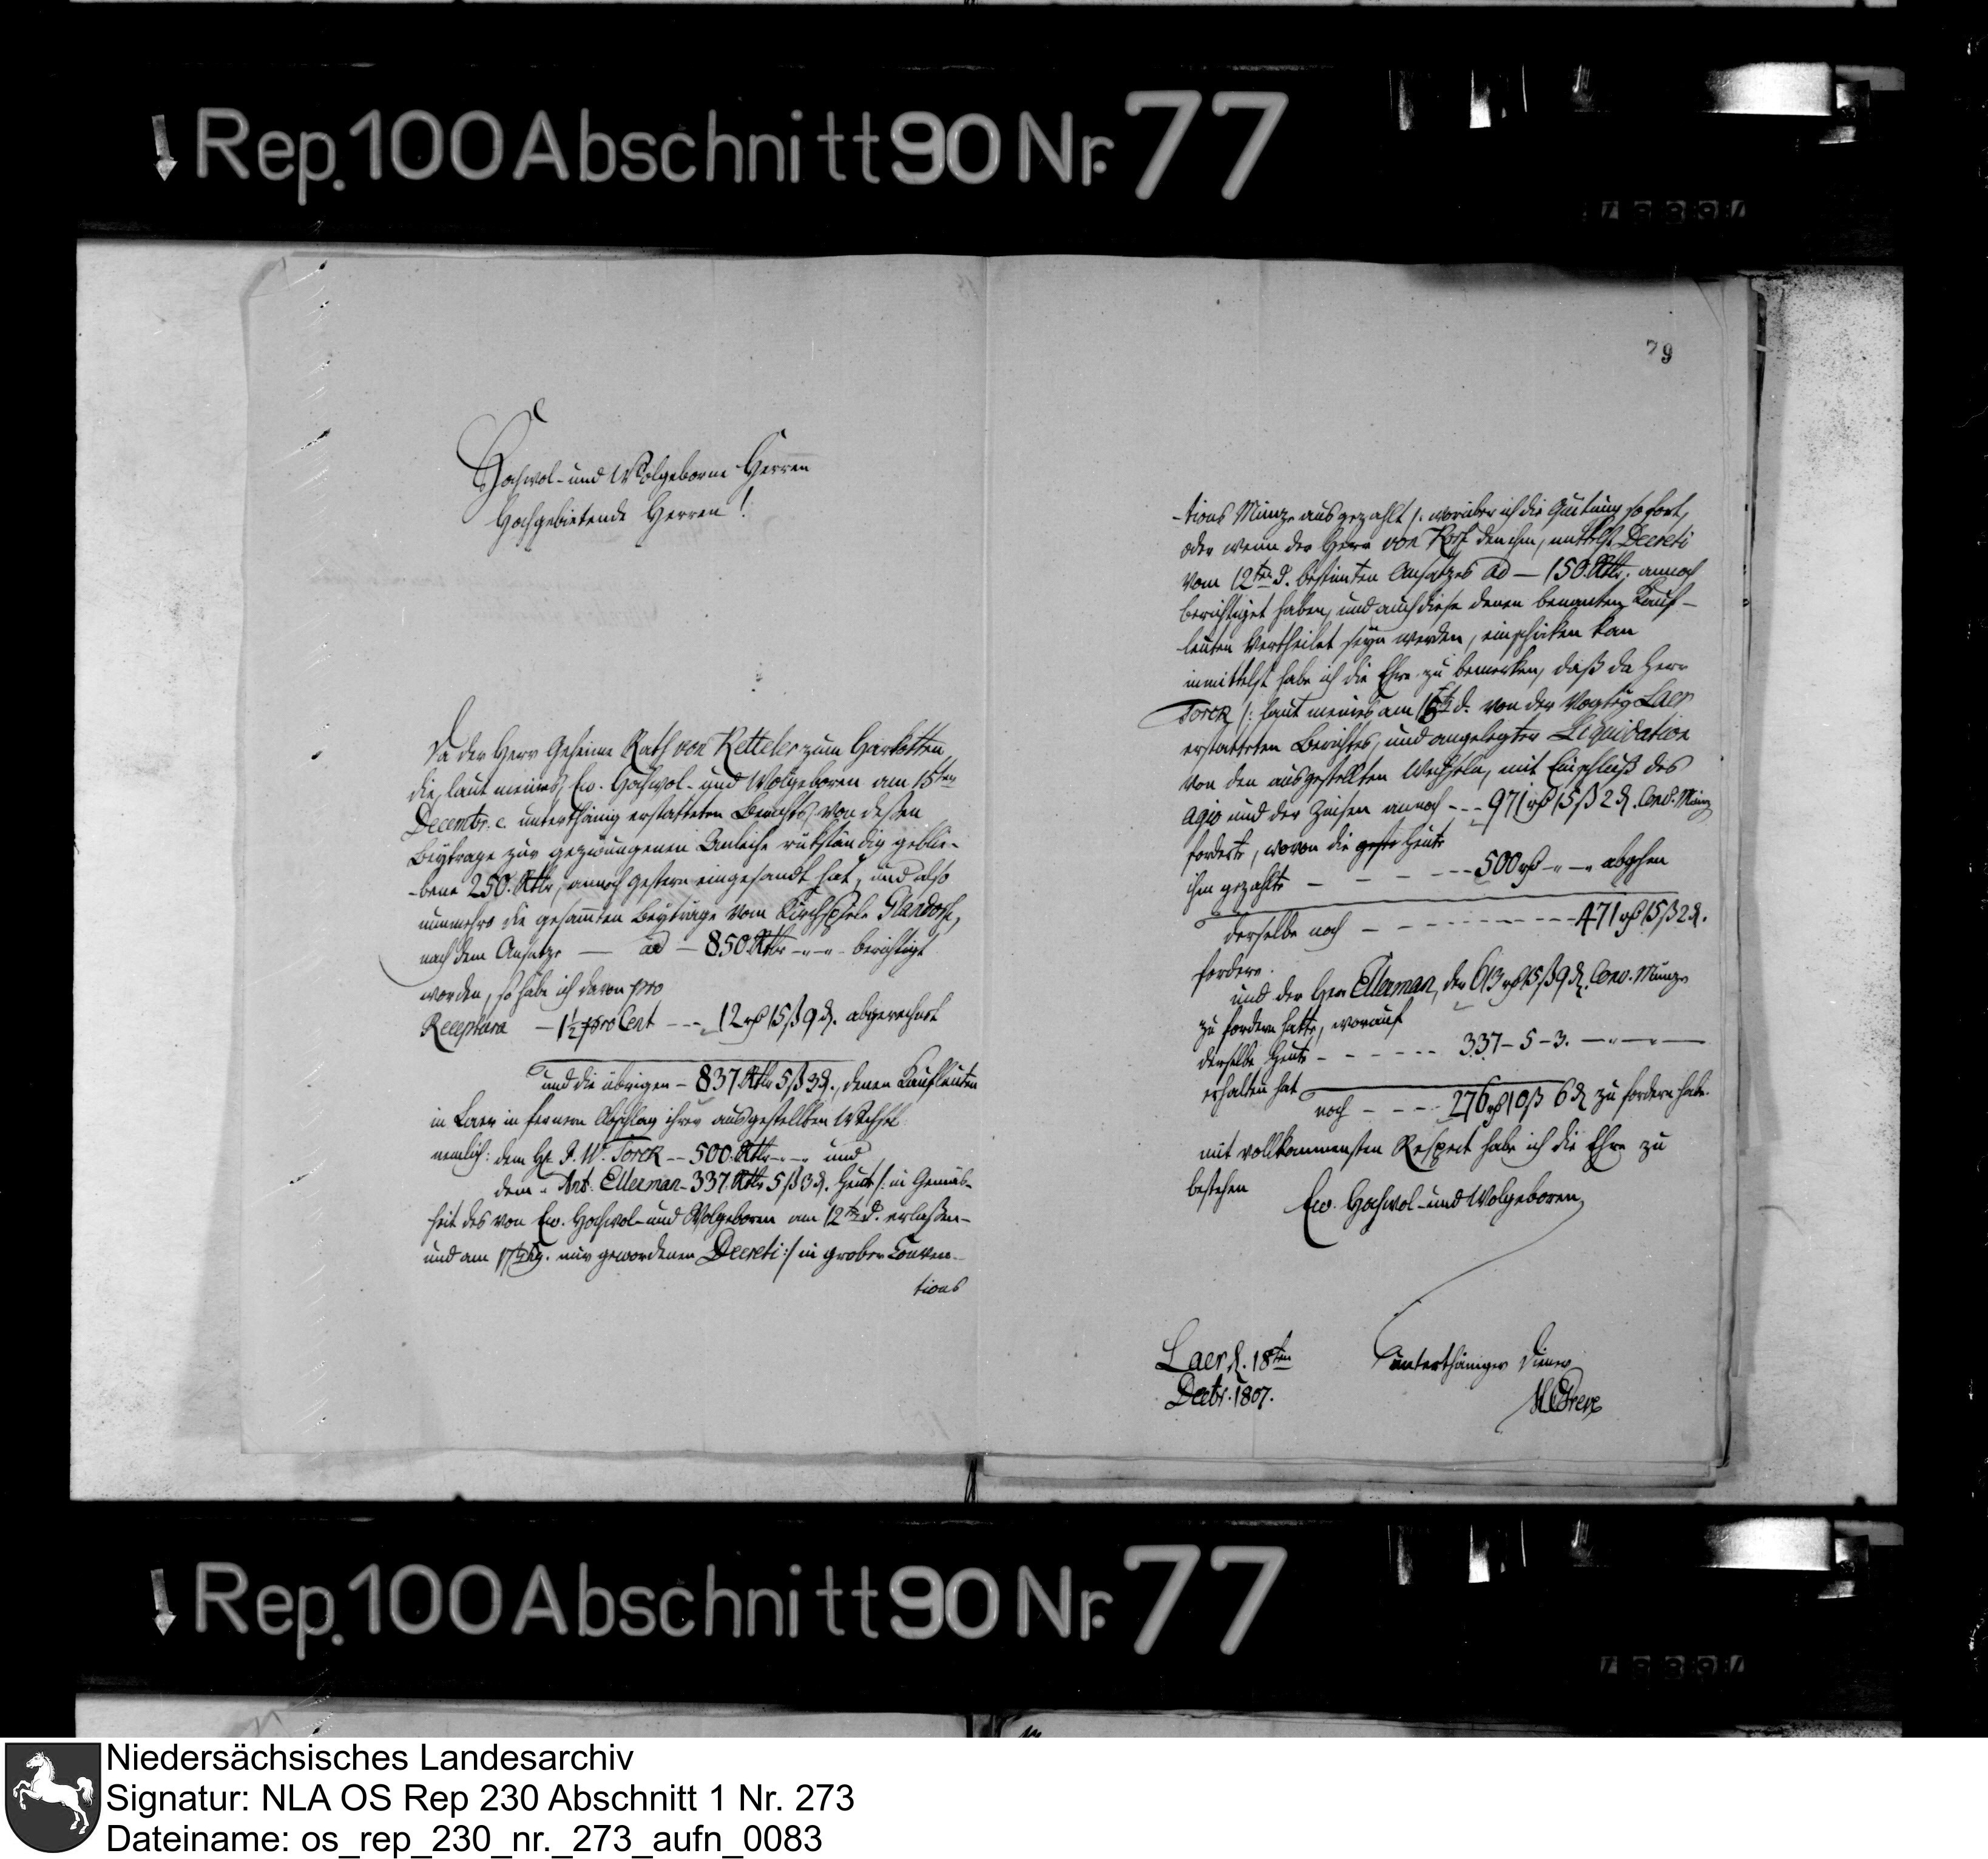 Rep. 100 Abschnitt 90 Nr. 77
79
Hochwol- und Wolgeborne Herren
Hochgebietende Herren!
Da der Herr Geheime Rath von Ketteler zum Harkotten
die, laut meines, Ew. Hochwol- und Wolgeboren am 15ten
Decembr. c. unterthänig erstatteten Berichts, von deßen
Beytrage zur gezwungenen Anleihe rükständig geblie-
-bene 250. Rtlr, annoch gestern eingesandt hat, und also
nunmehro die gesamten Beyträge vom Kirchspiele Glandorf,
nach dem Ansatze — ad — 850. Rtlr -„-„- berichtigt
worden, so habe ich davon pro
Receptura — 1½ pro Cent --- 12 rß 15 ß 9 d. abgerechnet
und die übrigen — 837 Rtlr 5 ß 3 d., denen Kaufleuten
in Laer in fernern Abschlag ihrer ausgestellten Wechsel
nemlich: dem H. J. W. Torck -- 500. Rtlr -„-„ und
dem „ Ant. Ellerman - 337. Rtlr 5 ß 3 d. heute /: in Gemäs-
heit des von Ew. Hochwol- und Wolgeboren am 12ten d. erlaßen-
und am 17ten mir gewordenen Decreti :/ in grober Conven-
tions
-tions Münze ausgezahlt /: worüber ich die Quitung sofort,
oder wenn der Herr von Korf den ihm, mittelst Decreti
vom 12ten d. bestimten Ansatzes ad — 150. Rtlr. annoch
berichtiget haben, und auch diese denen benanten Kauf-
leuten vertheilet seyn werden, einschicken kan
inmittelst habe ich die Ehre zu bemerken, daß da Herr
Torck /: laut meines am 16ten d. von der Vogtey Laer
erstatteten Berichtes, und angelegter Liquidation
von den ausgestellten Wechseln, mit Einschluß des
Agio und der Zinsen annoch --- 971 rß 15 ß 2 d. Conv. Münz
forderte, wovon die heute
ihm gezahlte — — — --- 500 rß -„-„ abgehen
derselbe noch — — — --- 471 rß 15 ß 2 d.
fordere.
und der Herr Ellerman, der 613 rß 15 ß 9 d. Conv. Münze
zu fordern hatte, worauf
derselbe heute - - - - - - - 337 - 5 - 3. —„—„—
erhalten hat
noch - - - - 276 rß 10 ß 6 d zu fordern habe.
mit vollkommensten Respect habe ich die Ehre zu
bestehen
Ew. Hochwol- und Wolgeboren
Laer d. 18ten
Decbr. 1807.
unterthäniger Diener
Rep. 100 Abschnitt 90 Nr. 77
Niedersächsisches Landesarchiv
Signatur: NLA OS Rep 230 Abschnitt 1 Nr. 273
Dateiname: os_rep_230_nr._273_aufn_0083